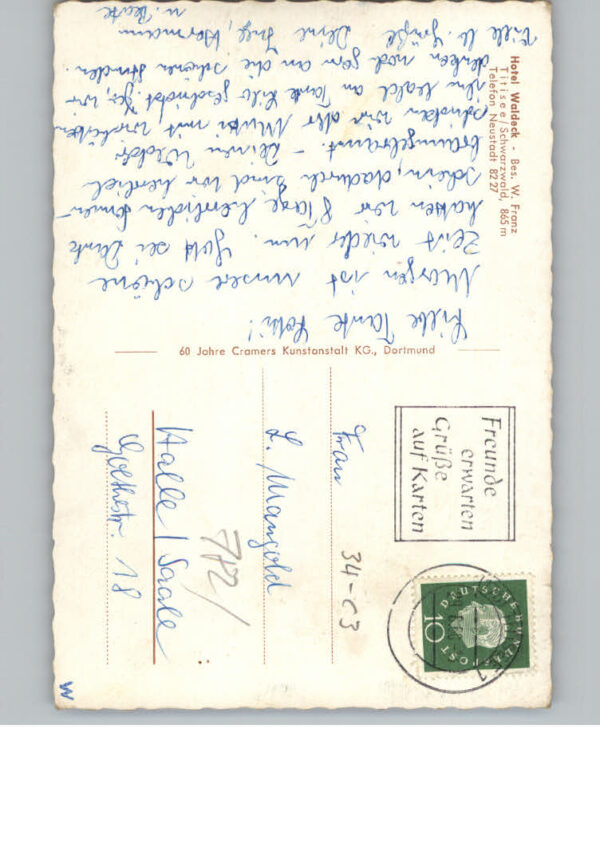 Hotel Waldeck - Bes. W. Franz
Titisee/Schwarzwald, 865 m
Telefon Neustadt 82 27
Liebe Tante Lotti!
Morgen ist unsere schöne
Zeit wieder um. Gott sei Dank
hatten wir 8 Tage herrlichen Sonnen-
schein, dadurch sind wir herrlich
braungebrannt - Deinen
schicken wir aber Mutti mit
an Tante geschickt. Ja, wir
denken noch gern an die schönen Stunden.
Viele l. Grüße Deine Inge, Hermann
u. Beate
60 Jahre Cramers Kunstanstalt KG., Dortmund
Freunde
erwarten
Grüße
auf Karten
DEUTSCHE BUNDESPOST
10
Frau
L. Mangold
Halle / Saale
Goethestr. 18
34-C3
712/
W